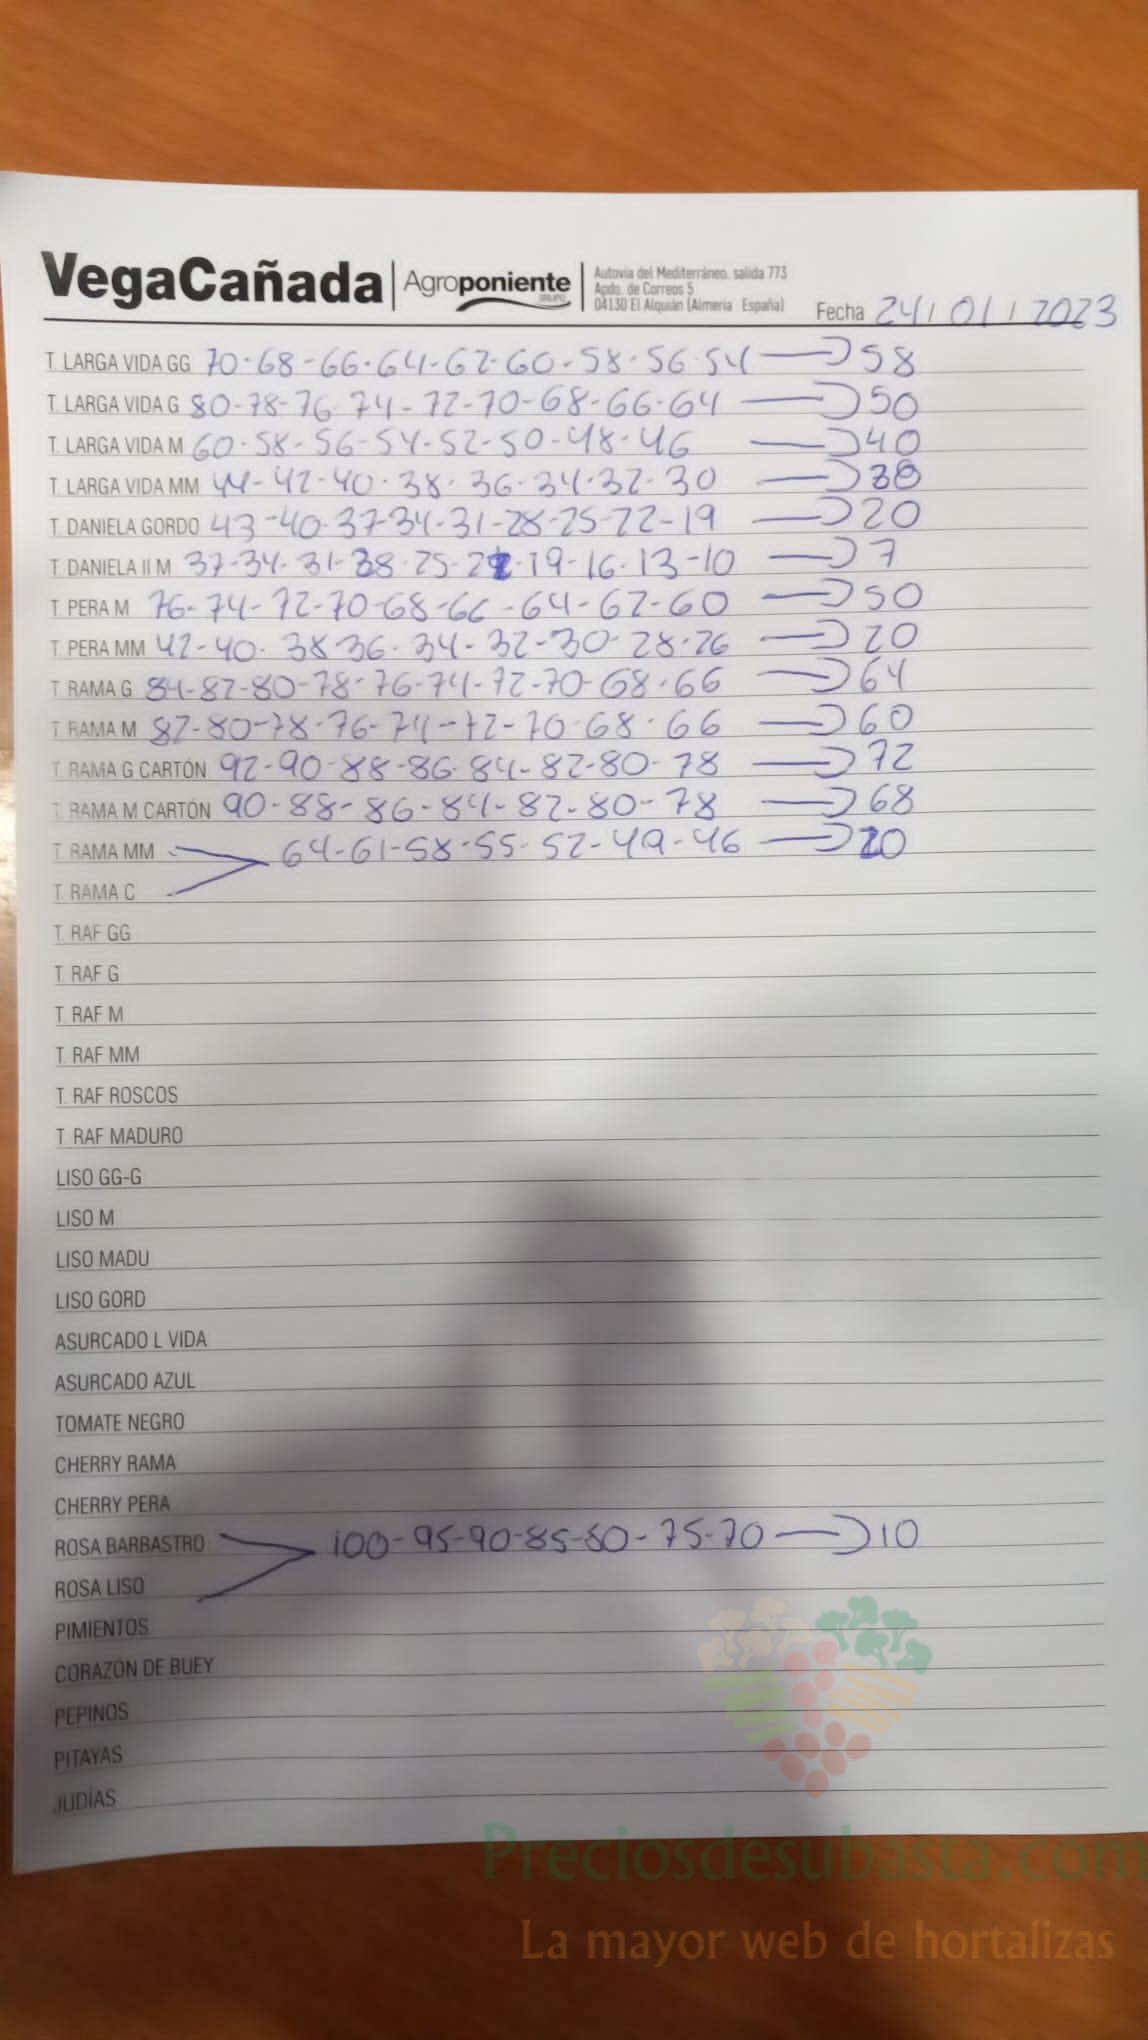 VegaCañada | Agroponiente GRUPO
Autovía del Mediterráneo, salida 773
Apdo. de Correos 5
04130 El Alquián (Almería · España)
Fecha 24/01/2023
T. LARGA VIDA GG 70-68-66-64-62-60-58-56-54 → 58
T. LARGA VIDA G 80-78-76-74-72-70-68-66-64 → 50
T. LARGA VIDA M 60-58-56-54-52-50-48-46 → 40
T. LARGA VIDA MM 44-42-40-38-36-34-32-30 →
T. DANIELA GORDO 43-40-37-34-31-28-25-22-19 → 20
T. DANIELA II M 37-34-31-28-25-22-19-16-13-10 → 7
T. PERA M 76-74-72-70-68-66-64-62-60 → 50
T. PERA MM 42-40-38-36-34-32-30-28-26 → 20
T. RAMA G 84-82-80-78-76-74-72-70-68-66 → 64
T. RAMA M 82-80-78-76-74-72-70-68-66 → 60
T. RAMA G CARTÓN 92-90-88-86-84-82-80-78 → 72
T. RAMA M CARTÓN 90-88-86-84-82-80-78 → 68
T. RAMA MM 64-61-58-55-52-49-46 →
T. RAMA C
T. RAF GG
T. RAF G
T. RAF M
T. RAF MM
T. RAF ROSCOS
T. RAF MADURO
LISO GG-G
LISO M
LISO MADU
LISO GORD
ASURCADO L VIDA
ASURCADO AZUL
TOMATE NEGRO
CHERRY RAMA
CHERRY PERA
ROSA BARBASTRO 100-95-90-85-80-75-70 → 10
ROSA LISO
PIMIENTOS
CORAZÓN DE BUEY
PEPINOS
PITAYAS
JUDÍAS
Preciosdesubasta.com
La mayor web de hortalizas